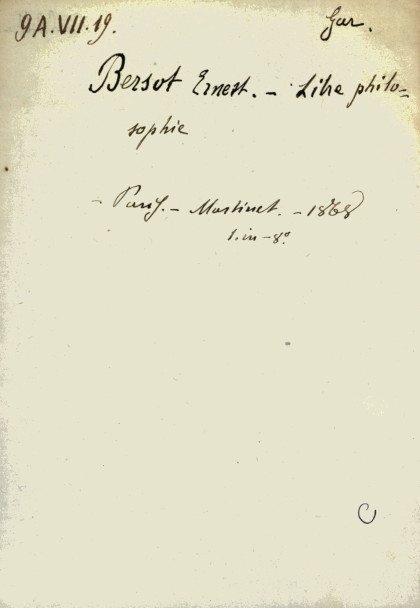 9A.VII.19. Gar.
Bersot Ernest. - Libre philo-
sophie
- Paris. - Martinet. - 1868
1. in-8°
C